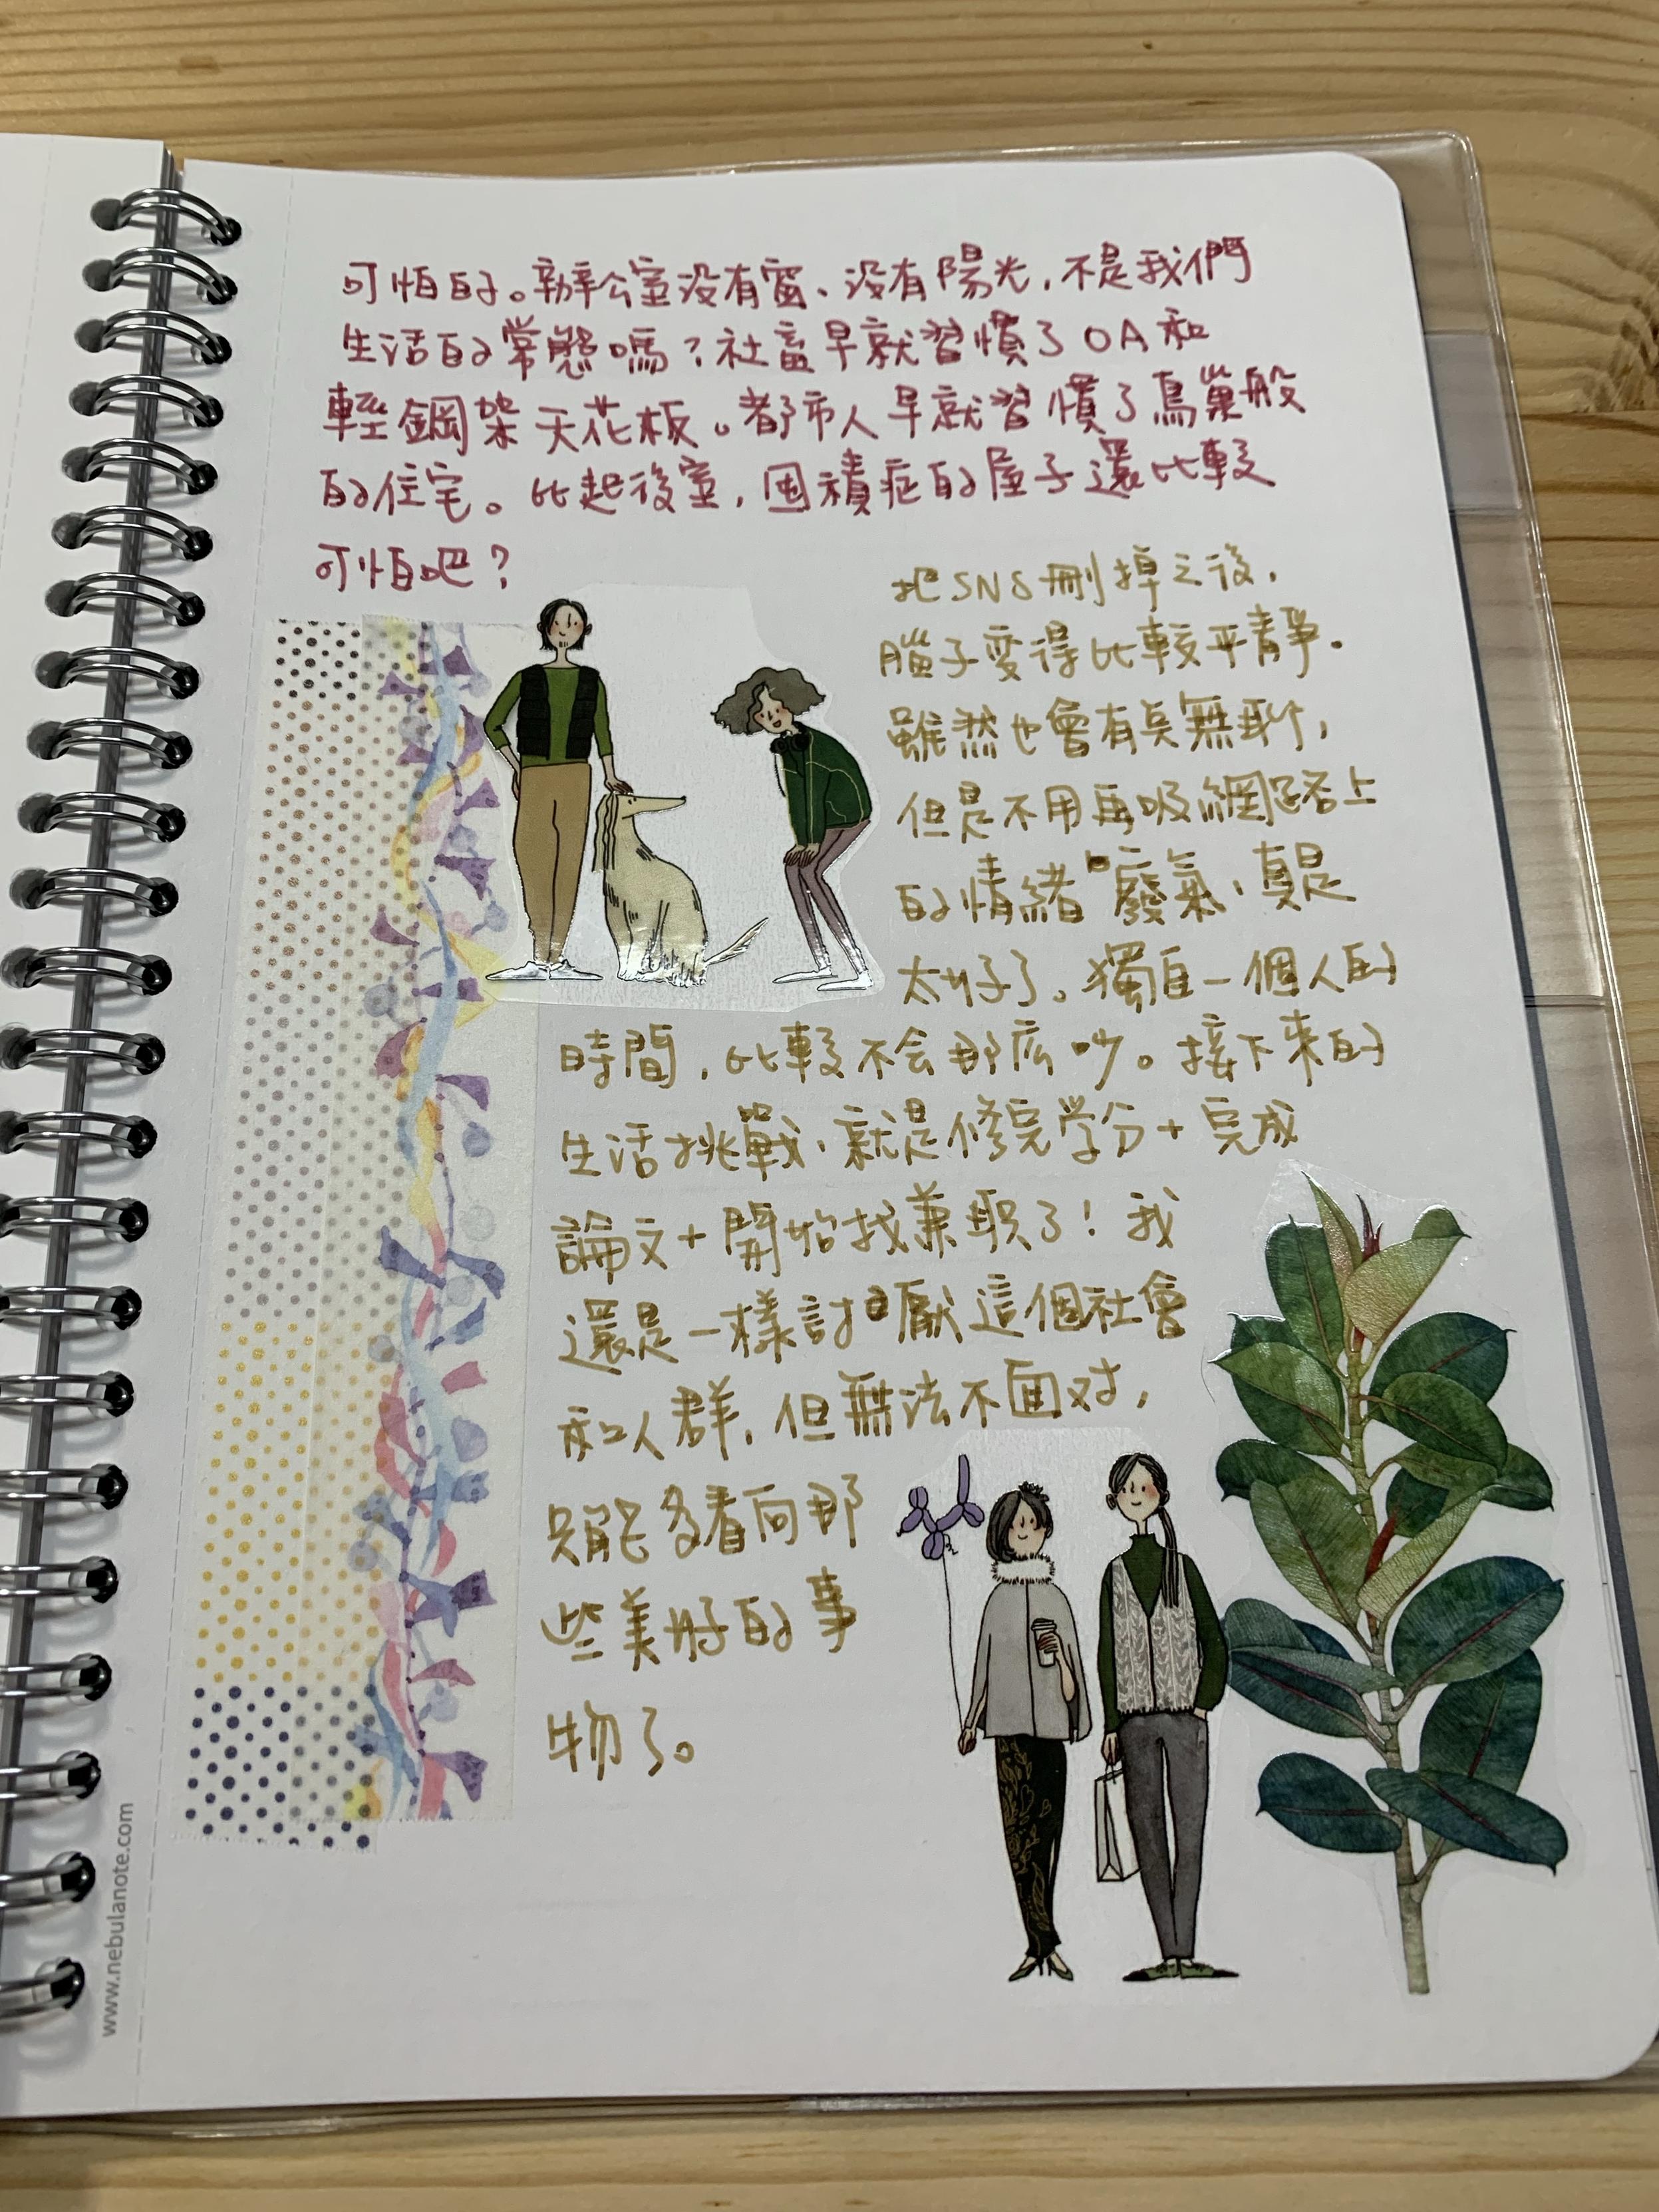 可怕的。辦公室没有窗、没有陽光，不是我們
生活的常態嗎？社畜早就習慣了OA和
輕鋼架天花板。都市人早就習慣了鳥巢般
的住宅。比起後室，囤積症的屋子還比較
可怕吧？
把SNS刪掉之後，
腦子変得比較平靜。
雖然也會有点無聊，
但是不用再吸網路上
的情緒廢氣，真是
太好了。獨自一個人的
時間，比較不会那広吵。接下来的
生活挑戰，就是修完学分+完成
論文+開始找兼职了！我
還是一樣討厭這個社會
和人群，但無法不面对，
只能多看向那
些美好的事
物了。
www.nebulanote.com